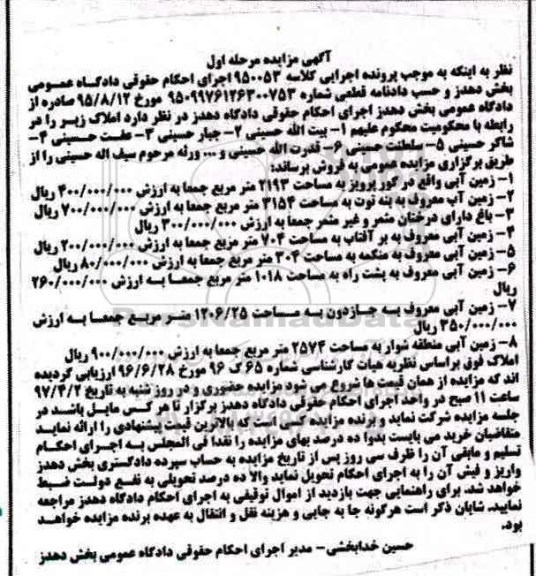 آگهی مزایده مرحله اول
نظر به اینکه به موجب پرونده اجرایی کلاسه ۹۵۰۰۵۳ اجرای احکام حقوقی دادگاه عمومی
بخش دهدز و حسب دادنامه قطعی شماره ۹۵۰۹۹۷۶۱۲۶۳۰۰۷۵۳ مورخ ۹۵/۸/۱۲ صادره از
دادگاه عمومی بخش دهدز اجرای احکام حقوقی دادگاه دهدز در نظر دارد املاک زیر را در
رابطه با محکومیت محکوم علیهم ۱- بیت الله حسینی ۲- جبار حسینی ۳- عفت حسینی ۴-
شاکر حسینی ۵- سلطنت حسینی ۶- قدرت الله حسینی و ... ورثه مرحوم سیف اله حسینی را از
طریق برگزاری مزایده عمومی به فروش برساند:
۱- زمین آبی واقع در گور پرویز به مساحت ۲۱۹۳ متر مربع جمعا به ارزش ۴۰۰/۰۰۰/۰۰۰ ریال
۲- زمین آب معروف به بنه توت به مساحت ۳۱۵۴ متر مربع جمعا به ارزش ۷۰۰/۰۰۰/۰۰۰ ریال
۳- باغ دارای درختان مثمر و غیر مثمر جمعا به ارزش ۳۰۰/۰۰۰/۰۰۰ ریال
۴- زمین آبی معروف به بر آفتاب به مساحت ۷۰۳ متر مربع جمعا به ارزش ۲۰۰/۰۰۰/۰۰۰ ریال
۵- زمین آبی معروف به منکمه به مساحت ۳۰۴ متر مربع جمعا به ارزش ۸۰/۰۰۰/۰۰۰ ریال
۶- زمین آبی معروف به پشت راه به مساحت ۱۰۱۸ متر مربع جمعا به ارزش ۲۶۰/۰۰۰/۰۰۰
ریال
۷- زمین آبی معروف به جازدون به مساحت ۱۲۰۶/۲۵ متر مربع جمعا به ارزش
۳۵۰/۰۰۰/۰۰۰ ریال
۸- زمین آبی منطقه شوار به مساحت ۲۵۷۳ متر مربع جمعا به ارزش ۹۰۰/۰۰۰/۰۰۰ ریال
املاک فوق براساس نظریه هیات کارشناسی شماره ۶۵ ک ۹۶ مورخ ۹۶/۶/۲۸ ارزیابی گردیده
اند که مزایده از همان قیمت ها شروع می شود مزایده حضوری و در روز شنبه به تاریخ ۹۷/۴/۲
ساعت ۱۱ صبح در واحد اجرای احکام حقوقی دادگاه دهدز برگزار تا هر کس مایل باشد در
جلسه مزایده شرکت نماید و برنده مزایده کسی است که بالاترین قیمت پیشنهادی را ارائه نماید
متقاضیان خرید می بایست بدوا ده درصد بهای مزایده را نقدا فی المجلس به اجرای احکام
تسلیم و مابقی آن را ظرف سی روز پس از تاریخ مزایده به حساب سپرده دادگستری بخش دهدز
واریز و فیش آن را به اجرای احکام تحویل نماید والا ده درصد تحویلی به نفع دولت ضبط
خواهد شد. برای راهنمایی جهت بازدید از اموال توقیفی به اجرای احکام دادگاه دهدز مراجعه
نمایید. شایان ذکر است هرگونه جا به جایی و هزینه نقل و انتقال به عهده برنده مزایده خواهد
بود.
حسین خدابخشی - مدیر اجرای احکام حقوقی دادگاه عمومی بخش دهدز
ParsNamadData